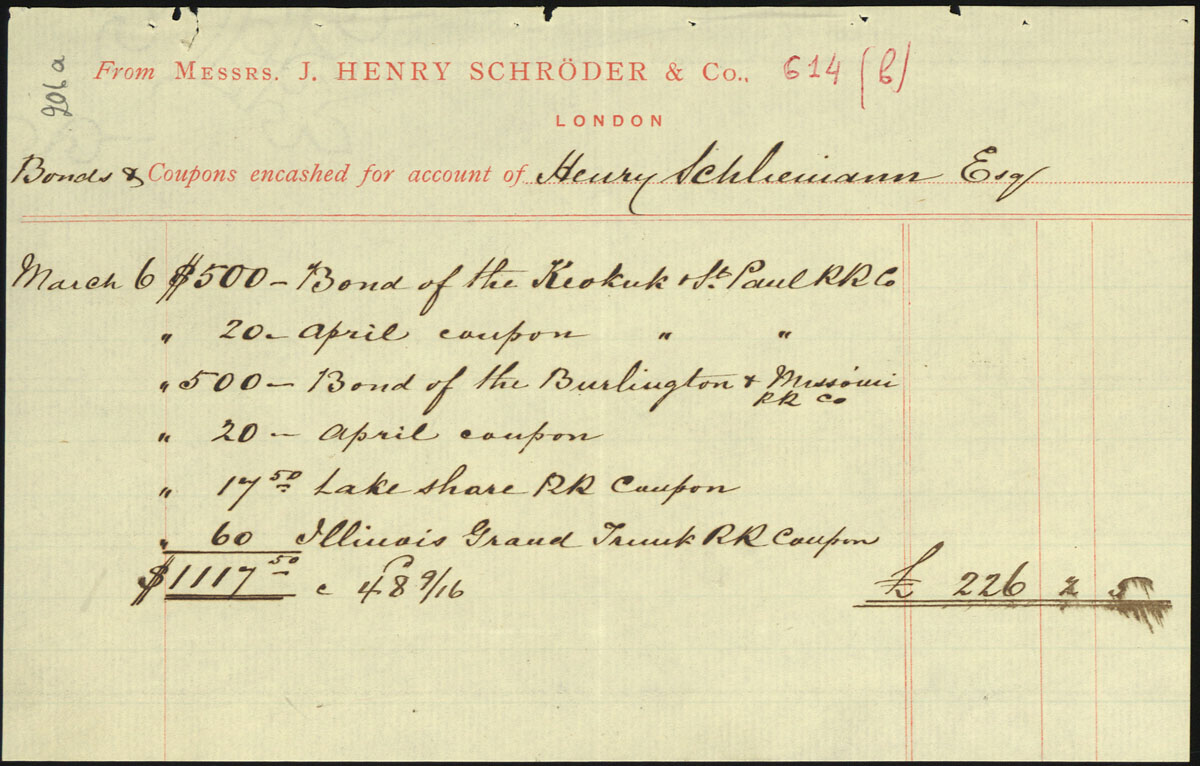 206a
From MESSRS. J. HENRY SCHRÖDER & Co., 614 (b)
LONDON
Bonds & Coupons encashed for account of Henry Schliemann Esq
March 6 $500 – Bond of the Keokuk & St. Paul RR Co
" 20 – April coupon " "
" 500 – Bond of the Burlington & Missouri
RR Co
" 20 – April coupon
" 17 50 Lake share RR Coupon
" 60 Illinois Grand Trunk RR Coupon
$1117 50 c 48 9/16 £ 226 2